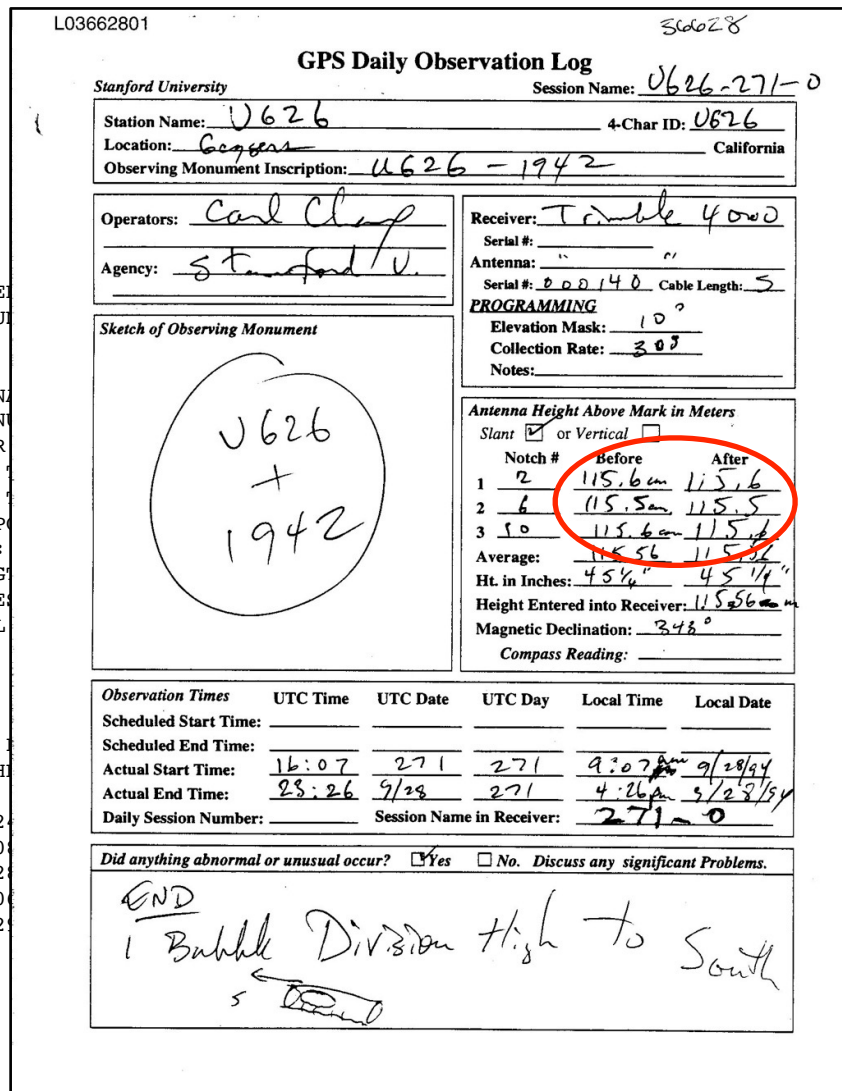 L03662801 36628
GPS Daily Observation Log
Stanford University Session Name: U626-271-0
Station Name: U626 4-Char ID: U626
Location: Geysers California
Observing Monument Inscription: U626 - 1942
Operators: Carl
Agency: Stanford U.
Receiver: Trimble 4000
Serial #:
Antenna: " "
Serial #: 000140 Cable Length: 5
PROGRAMMING
Elevation Mask: 10°
Collection Rate: 30s
Notes:
Sketch of Observing Monument
U626
+
1942
Antenna Height Above Mark in Meters
Slant ☑ or Vertical ☐
Notch # Before After
1 2 115.6 cm 115.6
2 6 115.5 cm 115.5
3 10 115.6 cm 115.6
Average: 115.56 115.56
Ht. in Inches: 45 1/4" 45 1/4"
Height Entered into Receiver: 115.56 m
Magnetic Declination: 343°
Compass Reading:
Observation Times UTC Time UTC Date UTC Day Local Time Local Date
Scheduled Start Time:
Scheduled End Time:
Actual Start Time: 16:07 271 271 9:07 am 9/28/94
Actual End Time: 23:26 9/28 271 4:26 pm 9/28/94
Daily Session Number: Session Name in Receiver: 271-0
Did anything abnormal or unusual occur? ☑ Yes ☐ No. Discuss any significant Problems.
END
1 Bubble Division High to South
S